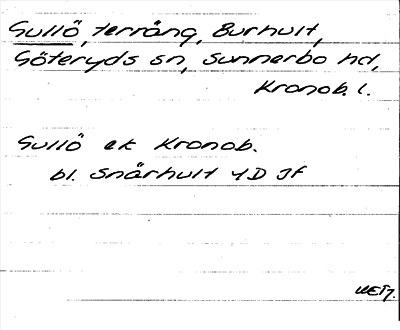 Gullö, terräng, Burhult,
Göteryds sn, Sunnerbo hd,
Kronob. l.
Gullö ek Kronob.
bl. Snårhult 4D Jf